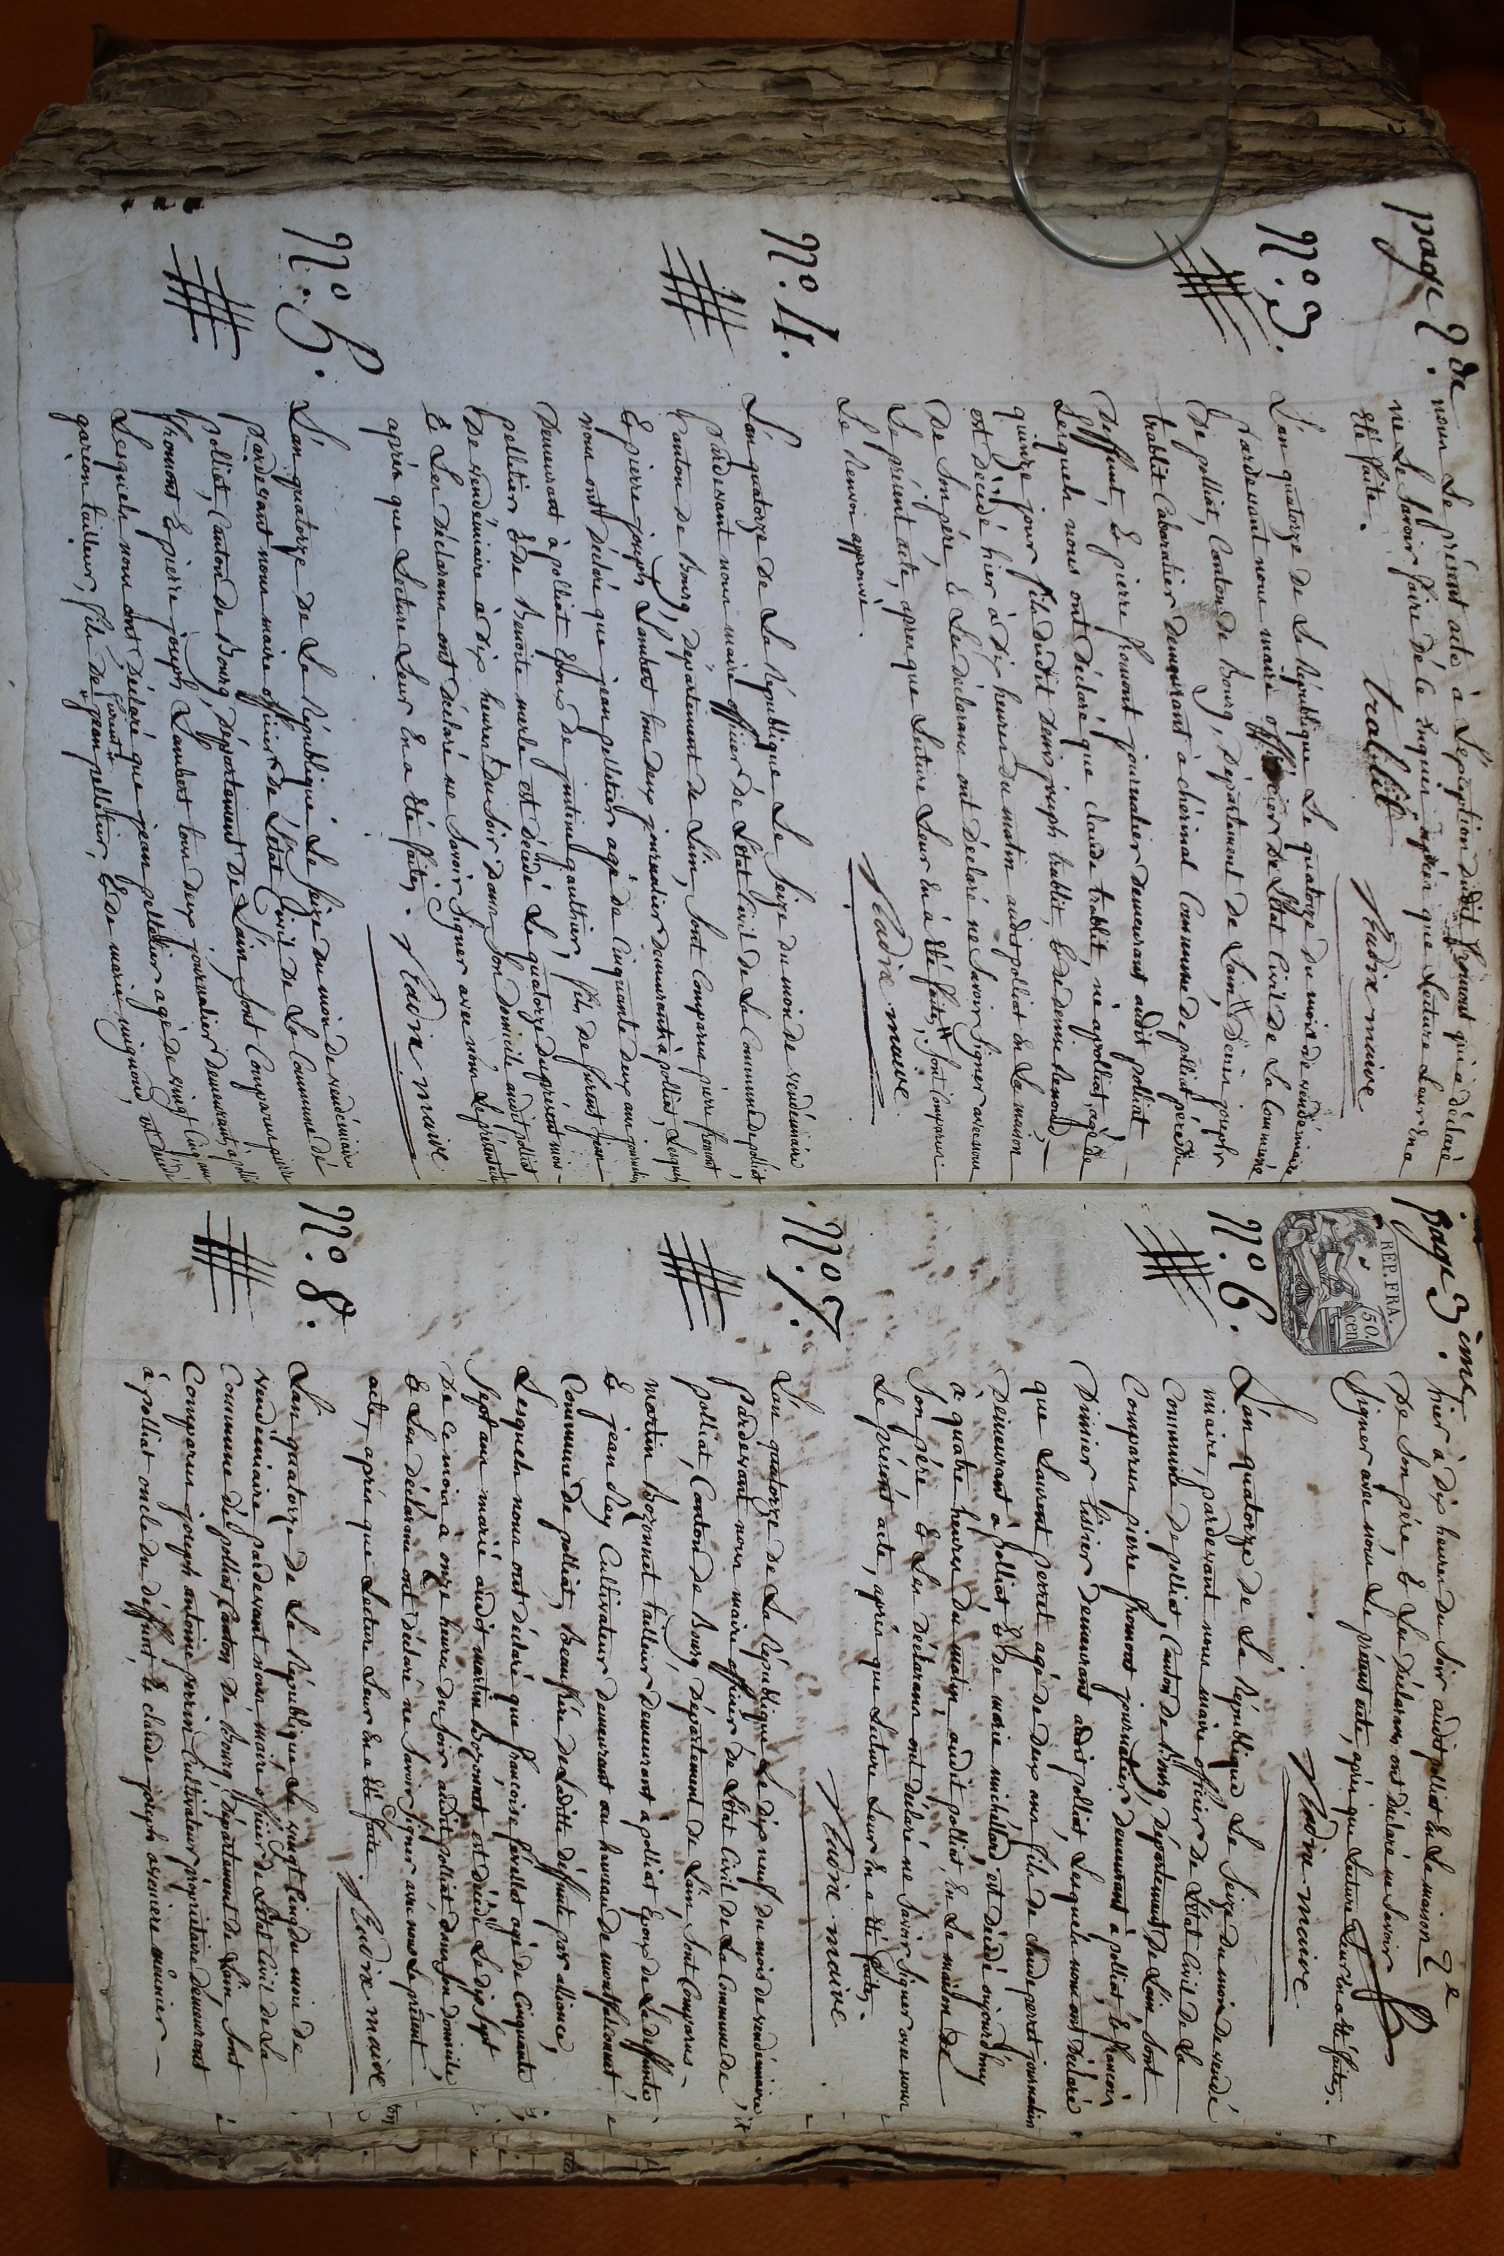 page 2de.
nous Le présent acte à L'éxception dudit fromont qui a déclaré
ne Le Savoir faire dé ce Enquis aprèz que Lecture Leur En a
Eté faite.
trablit Nudræ maire
N.o 3.
L'an quatorze de La République Le quatorze du mois de vendémiaire
Pardevant nous maire officier de L'Etat Civil de La Commune
De polliat, Canton de Bourg, Département de L'ain, Denis joseph
trablit Cabaretier demeurant à chérinal Commune de polliat père du
Deffunt, Et pierre fromont journalier demeurant audit polliat
Lesquels nous ont déclaré que claude trablit, né apolliat, agé de
quinze jour fils dudit denis joseph trablit, Et de denise Renoud,
est décédé hier à Dix heures du matin audit polliat En La maison
De Son père, Et Les Déclarans ont déclaré ne Savoir Signer avec nous
Le présent acte, apres que Lecture Leur En a Eté faite, Sont Comparus
Le Renvoi approuvé.
Nudræ maire
N.o 4.
L'an quatorze de La République Le Seize du mois de vendémiaire
Pardevant nous maire officier dé L'Etat Civil de La Commune de polliat
Canton de Bourg, Département de L'ain, Sont Comparus pierre fromont,
Et pierre joseph Lambert tous deux journalier demeurant à polliat, Lesquels
nous ont déclaré que jean pelletier agé de Cinquante deux ans journalier
Demeurant à polliat Epoux de justine gauthier, fils de furent jean
pelletier Et de Benoite merle est décédé Le quatorze du présent mois
De vendémiaire à Dix heures du Soir Dans Son domicile audit polliat
Et Les Déclarans ont déclaré ne Savoir Signer avec nous Le présent acte
après que Lecture Leur En a Eté faite. Nudræ maire
N.o 5.
L'an quatorze De La République Le Seize du mois de vendémiaire
Pardevant nous maire officier de L'Etat Civil De La Commune dé
polliat, Canton de Bourg, Département De L'ain, Sont Comparus pierre
fromont Et pierre joseph Lambert tous deux journalier Demeurants à polliat
Lesquels nous ont Déclaré que jean pelletier agé de vingt Cinq ans
garcon tailleur, fils de furent jean pelletier, Et de marie mignond, est décédé
page 3.ème
hier à dix heures du Soir audit polliat En La maison 2e
De Son père, Et Les Déclarans ont déclaré ne Savoir
Signer avec nous Le présent acte, après que Lecture Leur En a Eté faite.
Nudræ maire
REP. FRA.
50
cen
N.o 6.
L'an quatorze De La République Le Seize du mois de vendé
miaire, pardevant nous maire officier de L'Etat Civil de La
Commune de polliat, Canton de Bourg, Département de L'ain Sont
Comparus pierre fromont journalier Demeurant à polliat, Et francois
Dimier luivier demeurant audit polliat, Lesquels nous ont Déclaré
que Laurent perret agé de deux ans fils de claude perret journalier
Demeurant à polliat Et de marie michellard, est décédé aujourd'huy
à quatre heures du matin, audit polliat, En La maison De
Son père Et Les Déclarans ont Déclaré ne Savoir Signer avec nous
Le présent acte, après que Lecture Leur En a Eté faite.
Nudræ maire
N.o 7.
L'an quatorze de La République Le dix neuf du mois de vendémiaire
Pardevant nous maire officier, de L'Etat Civil de La Commune de
polliat, Canton de Bourg, Département de L'ain, Sont Comparus
martin Bozonnet tailleur demeurant à polliat Epoux de La deffunte
Et jean Rey Cultivateur demeurant au hameau de montfalconnet
Commune de polliat, beaufrére de Ladite déffunte par alliance,
Lesquels nous ont déclaré que francoise favellet agé de Cinquante
Sept ans marié audit martin bozonnet est décédé Le dix Sept
De ce mois à onze heures du Soir audit polliat dans Son domicile,
Et Les déclarans ont déclaré ne Savoir Signer avec nous Le présent
acte, après que Lecture Leur En a Eté faite. Nudræ maire
N.o 8.
L'an quatorze de La République Le vingt Cinq du mois de
vendémiaire pardevant nous maire officier de L'Etat Civil de La
Commune dé polliat, Canton de Bourg, Département de L'ain Sont
Comparus joseph antoine perrin Cultivateur propriétaire demeurant
à polliat oncle du déffunt, Et claude joseph asseniere mêunier